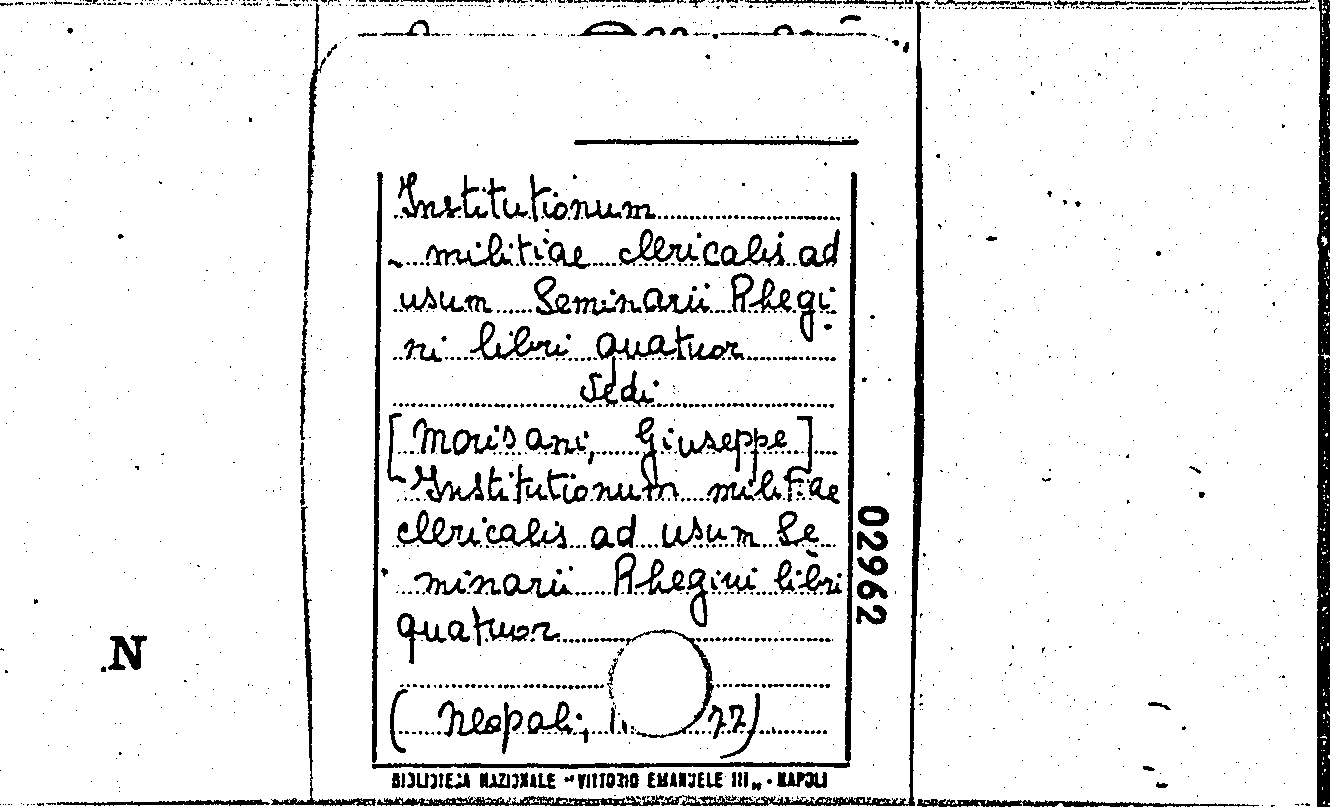 Institutionum
militiae clericalis ad
usum Seminarii Rhegi
ni libri quatuor
Vedi
[Morisani, Giuseppe]
Institutionum militiae
clericalis ad usum Se
minarii Rhegini libri
quatuor
(Neapoli, 1 77)
BIBLIOTECA NAZIONALE "VITTORIO EMANUELE III" - NAPOLI
029962
N